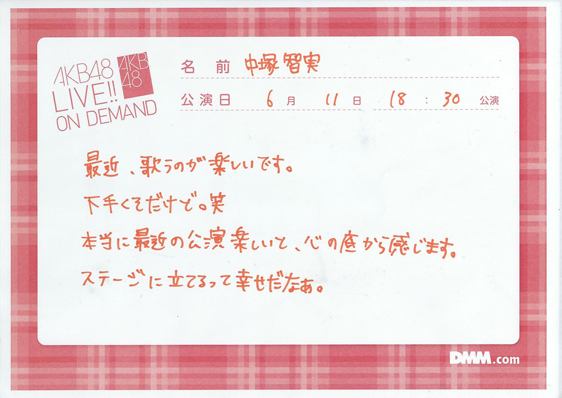 AKB48
LIVE!!
ON DEMAND
AKB
48
名前 中塚智実
公演日 6月 11日 18:30 公演
最近、歌うのが楽しいです。
下手くそだけど。笑
本当に最近の公演楽しいと、心の底から感じます。
ステージに立てるって幸せだなぁ。
DMM.com